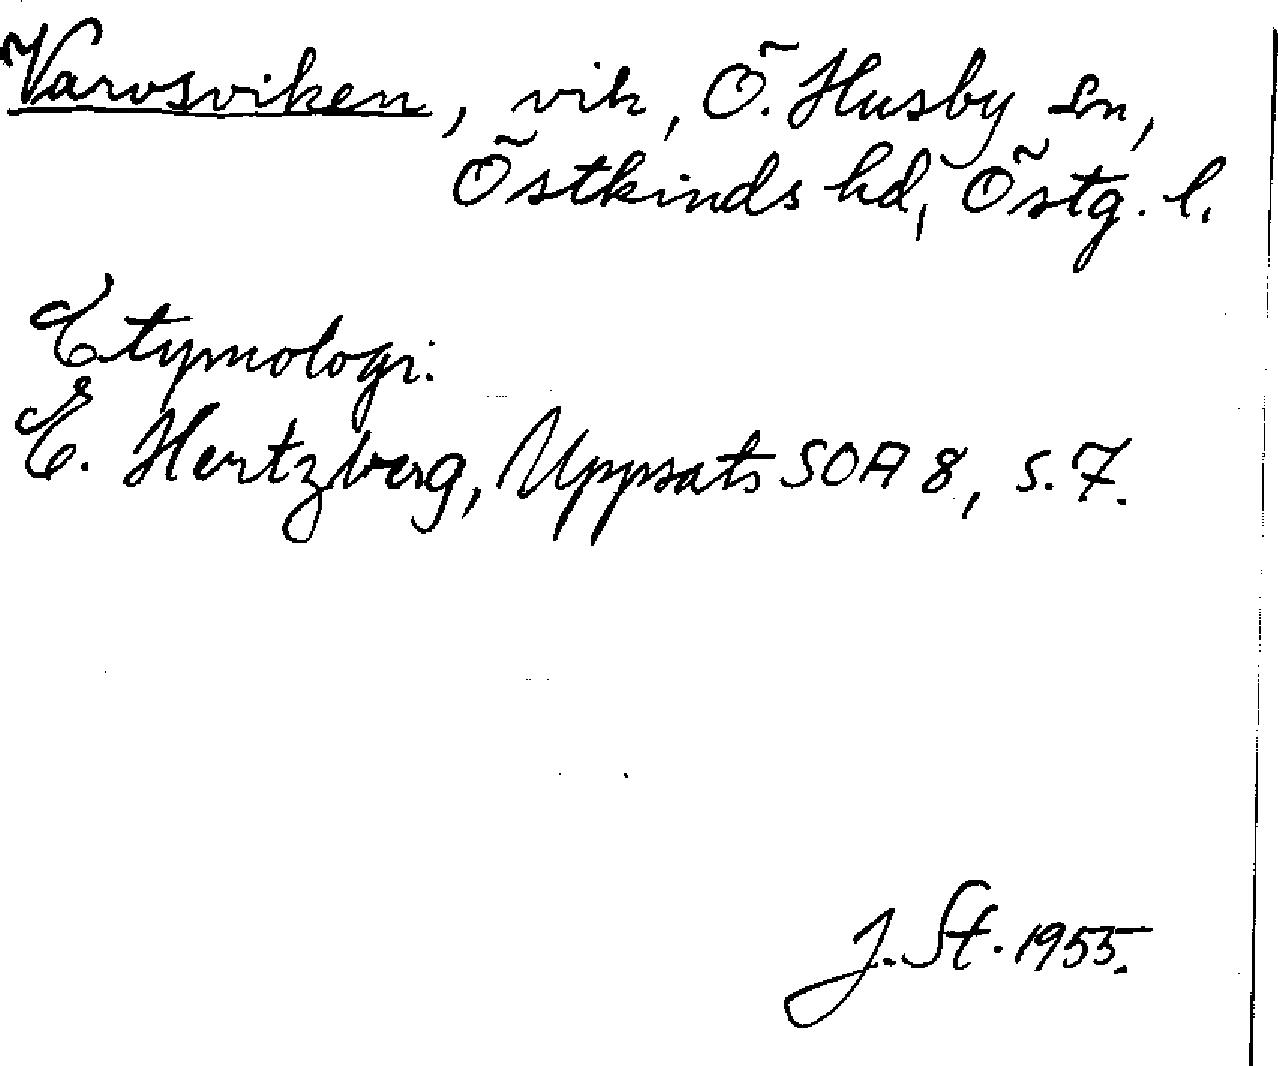 Varvsviken, vik, Ö. Husby sn,
Östkinds hd, Östg. l.
Etymologi:
E. Hertzberg, Uppsats SOA 8, s. 7.
J. St. 1955.